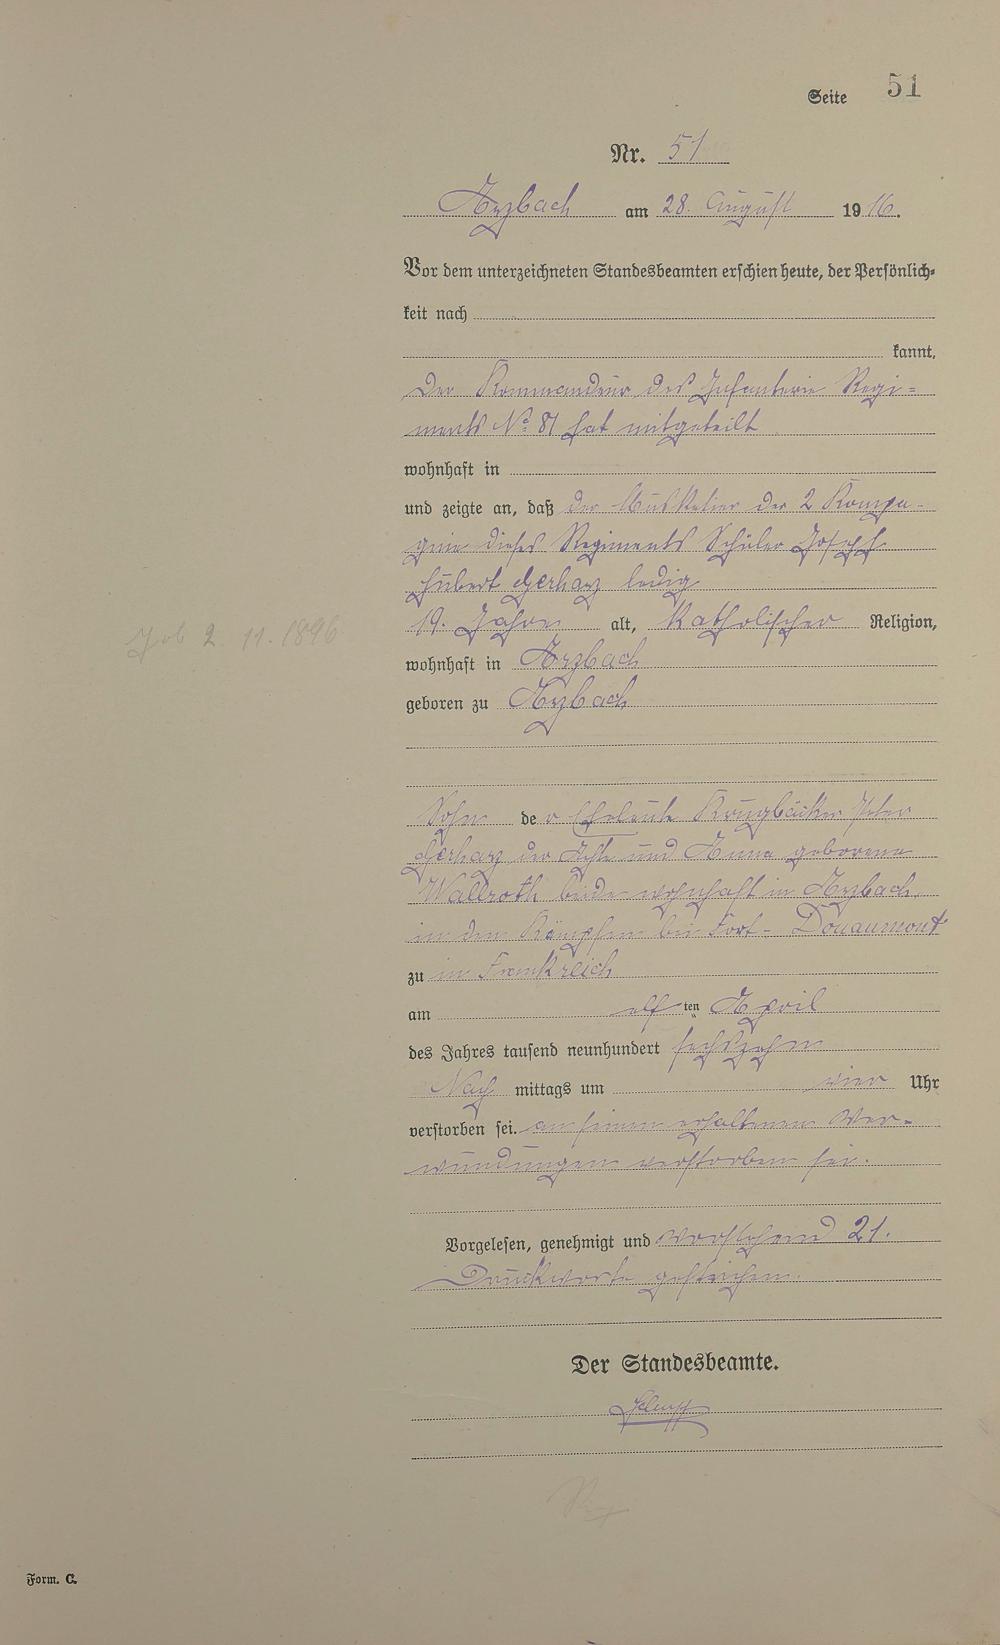 Seite 51
Nr. 51
Arzbach am 28. August 1916.
Vor dem unterzeichneten Standesbeamten erschien heute, der Persönlich-
keit nach
kannt,
Der Kommandeur des Infanterie Regi-
ments No 81 hat mitgeteilt
wohnhaft in
und zeigte an, daß der Musketier der 2 Kompa-
gnie dieses Regiments Schüler Joseph
Hubert Gerharz ledig
19. Jahre alt, Katholischer Religion,
geb 2. 11. 1896
wohnhaft in Arzbach
geboren zu Arzbach
Sohn der Eheleute Krugbäcker Peter
Gerharz der Achte und Anna geborene
Wallroth beide wohnhaft in Arzbach.
in den Kämpfen bei Fort-Douaumont
zu in Frankreich
am elften April
des Jahres tausend neunhundert sechszehn
Nach mittags um vier Uhr
verstorben sei. an seinen erhaltenen Ver-
wundungen verstorben sei.
Vorgelesen, genehmigt und vorstehend 21.
Druckworte gestrichen.
Der Standesbeamte.
Form. C.